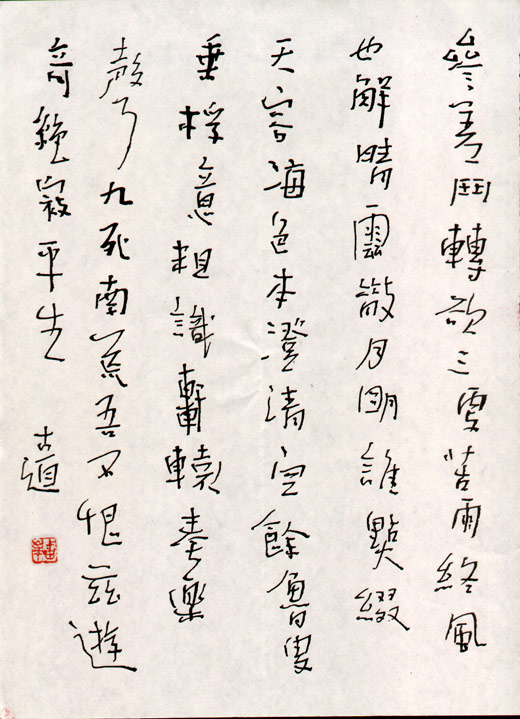 參鬥轉欲三更苦雨終風
也解晴雲散月明誰點綴
天容海色本澄清空餘魯叟
垂桴意粗識軒轅奏樂
聲九死南荒吾不恨茲遊
奇絕平生
古道